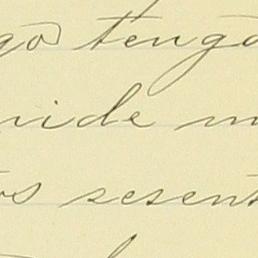 go tengo
mide m
os sesent